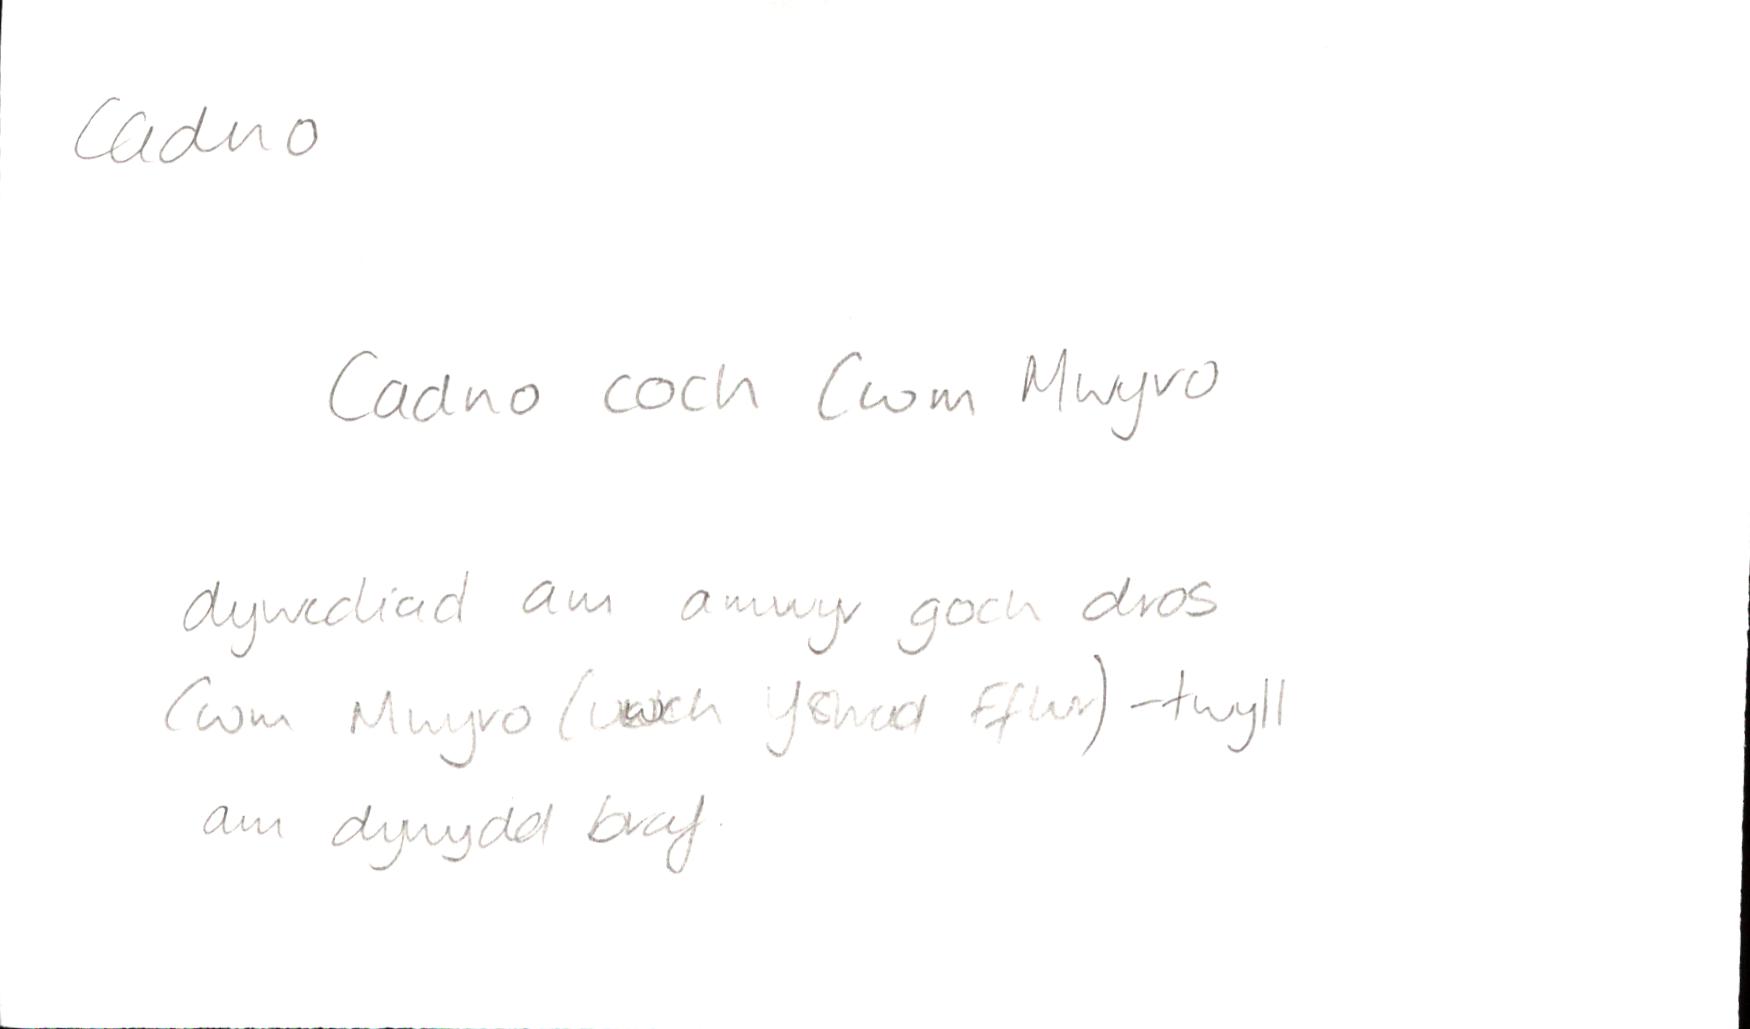 Cadno
Cadno coch Cwm Mwyro
dywediad am amwyr goch dros
Cwm Mwyro (uwch Ystrad Fflur) - twyll
am dywydd braf.